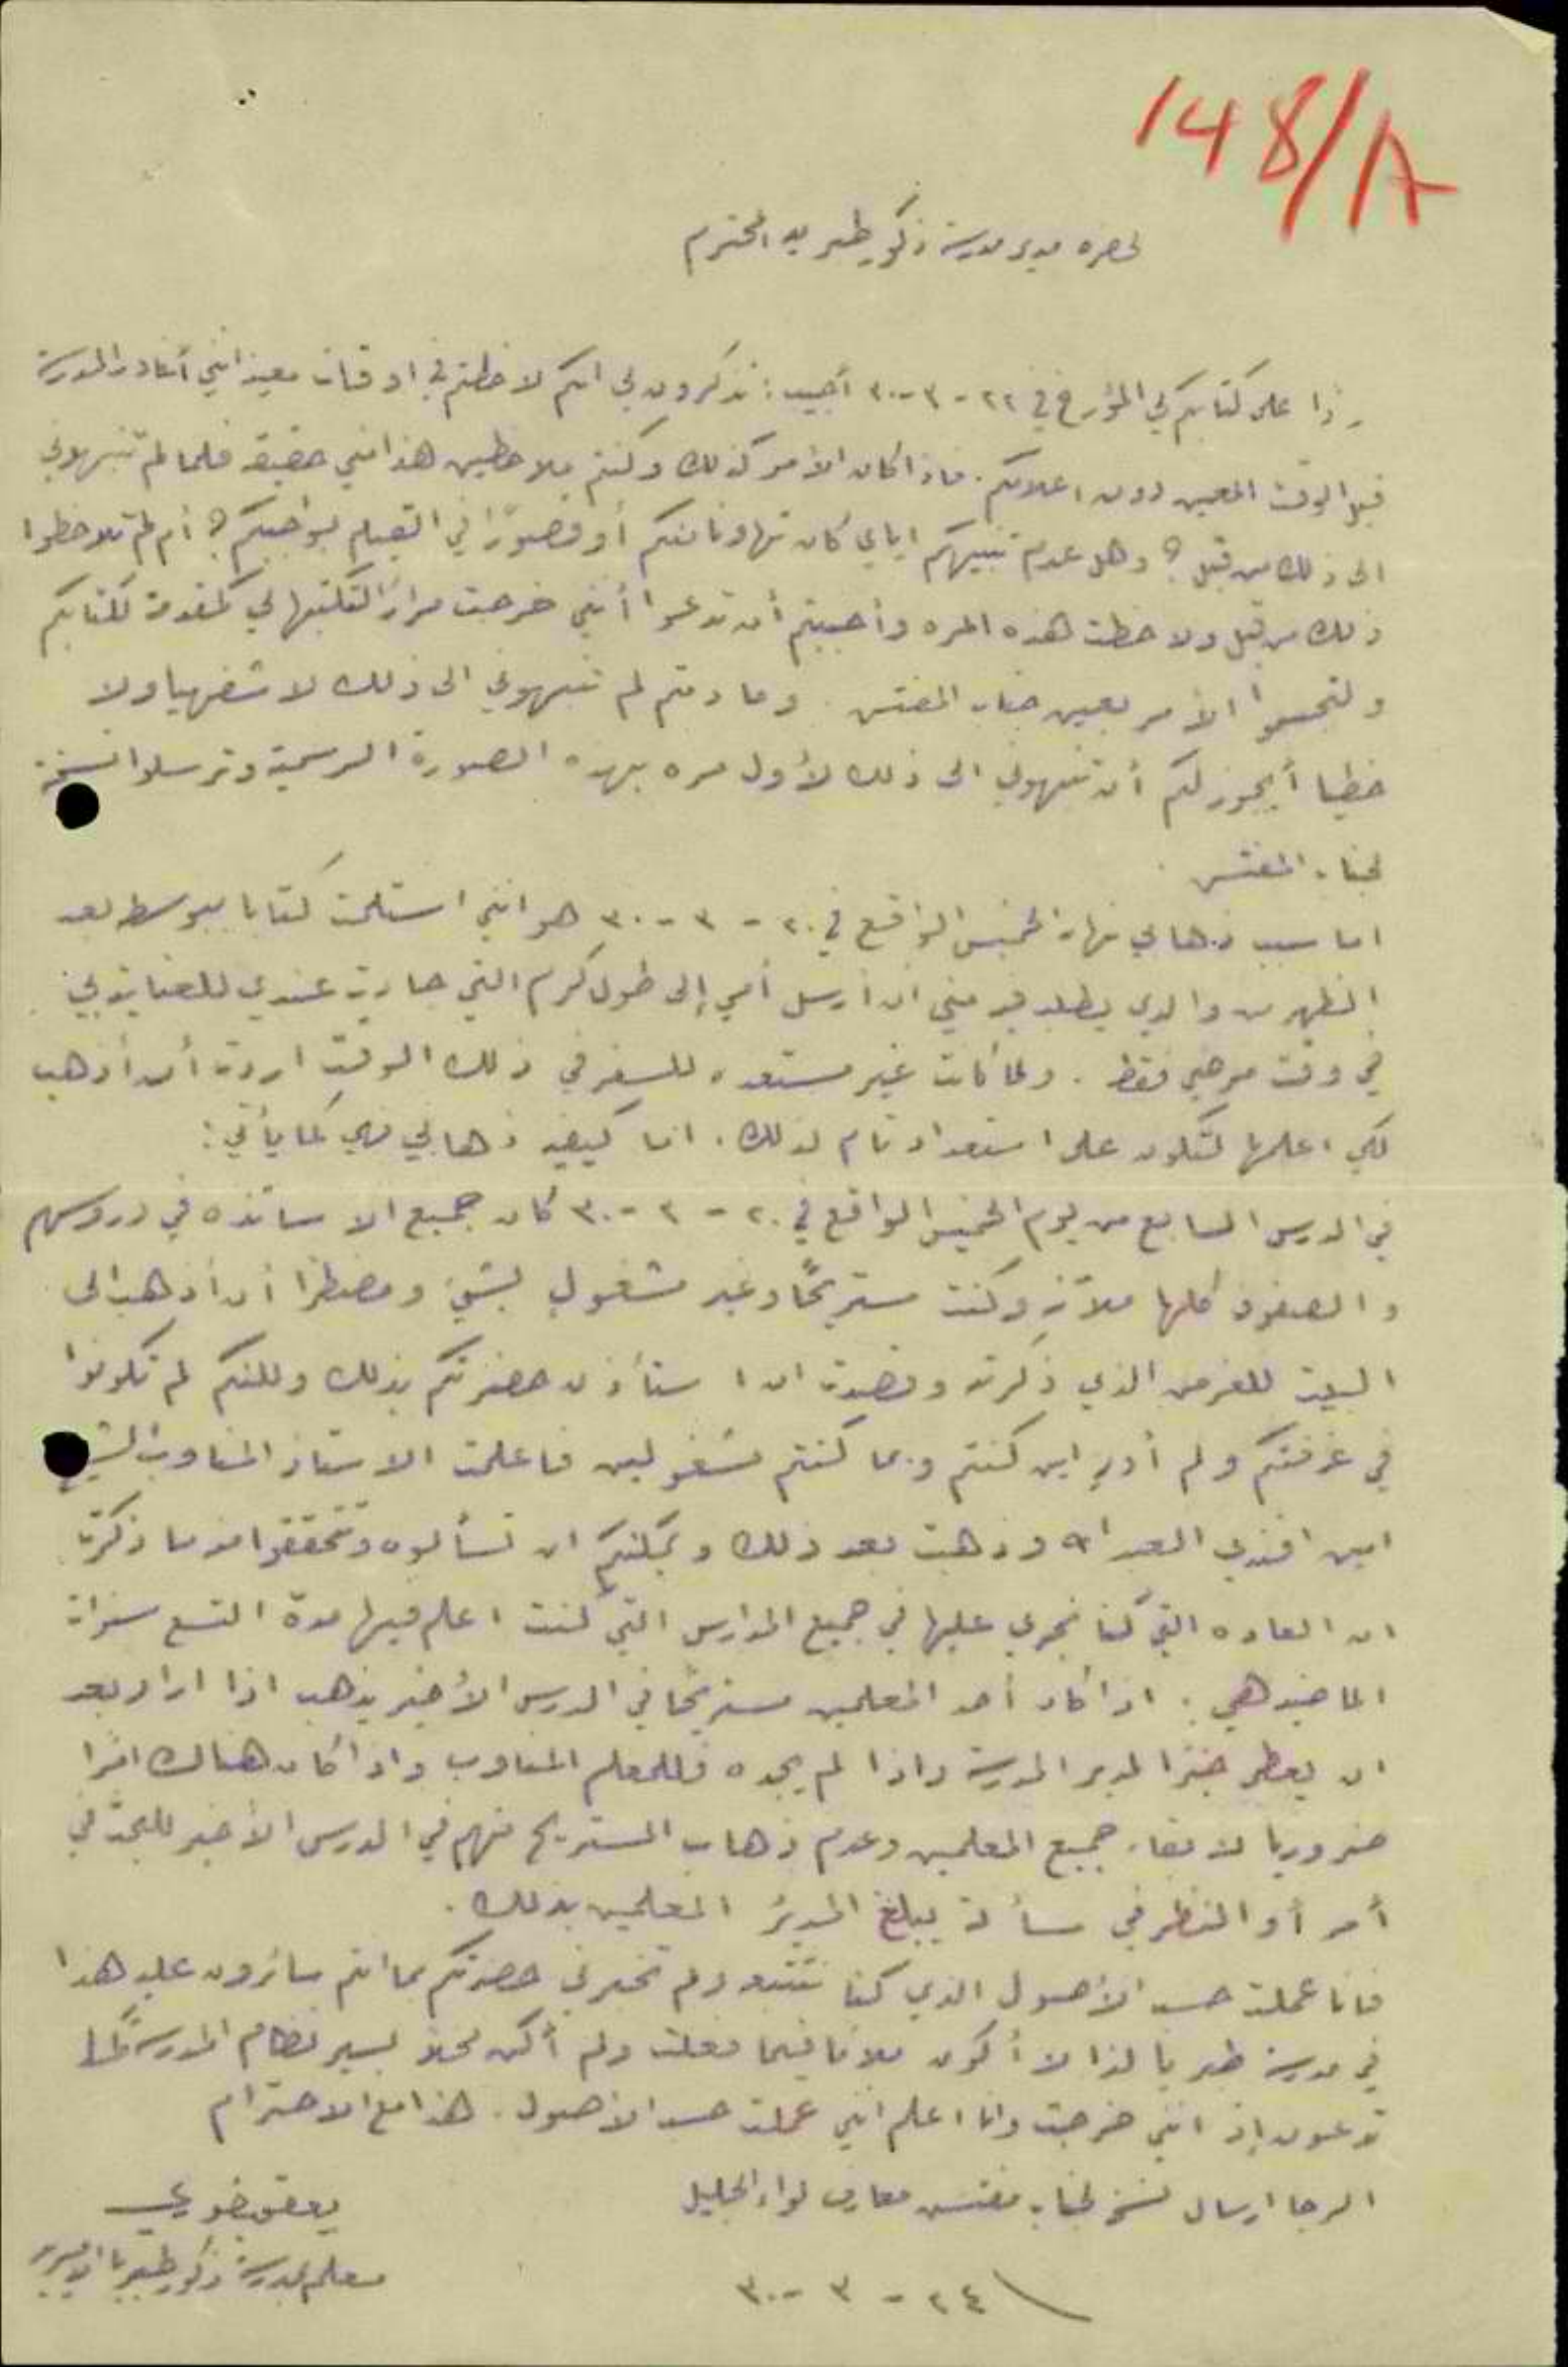 148/A
لحضره مدير مدرسة ذكور طبريه المحترم
ردا على كتابكم لي المؤرخ في ٢٢ - ٣ - ٣٠ أجيب: تذكرون لي انكم لاحظتم في اوقات معينه انني أغادر المدرسة
قبل الوقت المعين دون اعلامكم. فاذا كان الأمر كذلك وكنتم ملاحظين هذا مني حقيقة فلما لم تنبهوني
الى ذلك من قبل؟ وهل عدم تنبيهكم اياي كان تهاونا منكم أو قصورًا في القيام بواجبكم؟ أم لم تلاحظوا
ذلك من قبل ولاحظت هذه المره وأحببتم أن تدعوا أنني خرجت مرارًا لتكتبها لي كمقدمة لكتابكم
ولتجسموا الأمر بعين جناب المفتش. وما دمتم لم تنبهوني الى ذلك لا شفهيا ولا
خطيا أيجوز لكم أن تنبهوني الى ذلك لأول مره بهذه الصورة الرسمية وترسلوا نسخة
لجناب المفتش.
اما سبب ذهابي نهار الخميس الواقع في ٢٠ - ٣ - ٣٠ هو انني استلمت كتابا ببوسطة بعد
الظهر من والدي يطلب فيه مني ان أرسل أمي إلى طول كرم التي جاءت عندي للعناية بي
في وقت مرضي فقط. ولما كانت غير مستعده للسفر في ذلك الوقت اردت أن أذهب
لكي اعلمها لتكون على استعداد تام لذلك. اما كيفية ذهابي فهي كما يأتي:
في الدرس السابع من يوم الخميس الواقع في ٢٠ - ٣ - ٣٠ كان جميع الاساتذه في دروسهم
والصفوف كلها ملآنة وكنت مستريحًا وغير مشغول بشيء ومضطرا أن أذهب الى
البيت للغرض الذي ذكرته وقصدت ان استأذن حضرتكم بذلك ولكنكم لم تكونوا
في غرفتكم ولم أدرِ اين كنتم وبما كنتم مشغولين فاعلمت الاستاذ المناوب
امين افندي العبد الله وذهبت بعد ذلك ويمكنكم ان تسألوه وتتحققوا منه ما ذكرت
ان العاده التي كنا نجري عليها في جميع المدارس التي كنت اعلم فيها مدة التسع سنوات
الماضيه هي: اذا كان أحد المعلمين مستريحًا في الدرس الأخير يذهب اذا اراد بعد
ان يعطي خبرًا لمدير المدرسة واذا لم يجده فللمعلم المناوب واذا كان هنالك امرًا
ضروريا لابقاء جميع المعلمين وعدم ذهاب المستريح منهم في الدرس الأخير للبحث في
أمر أو النظر في مسألة يبلغ المديرُ المعلمين بذلك.
فانا عملت حسب الأصول الذي كنا نتبعه ولم تخبرني حضرتكم بما انتم سائرون عليه هذا
في مدرسة طبريا لذا لا أكون ملامًا فيما فعلت ولم أكن مخلا بسير نظام المدرسة كما
تدعون إذ انني خرجت وانا اعلم انني عملت حسب الأصول. هذا مع الاحترام
الرجا ارسال نسخه لجناب مفتش معارف لواء الجليل
يعقوب خوري
معلم بمدرسة ذكور طبريا الاميرية
٢٤ - ٣ - ٣٠